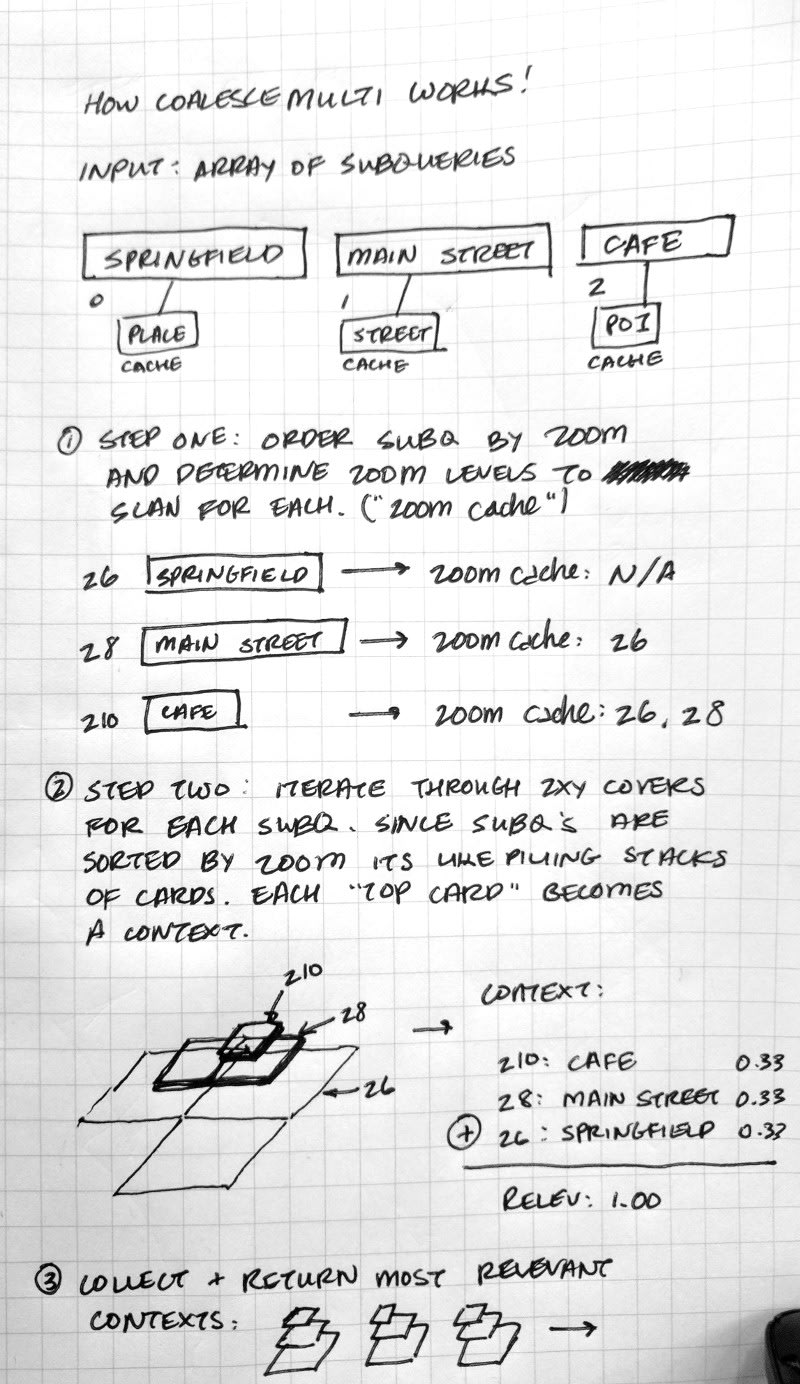 HOW COALESCEMULTI WORKS!
INPUT: ARRAY OF SUBQUERIES
SPRINGFIELD MAIN STREET CAFE
0 1 2
PLACE STREET POI
CACHE CACHE CACHE
① STEP ONE: ORDER SUBQ BY ZOOM
AND DETERMINE ZOOM LEVELS TO
SCAN FOR EACH. ("zoom cache")
26 SPRINGFIELD → zoom cache: N/A
28 MAIN STREET → zoom cache: 26
210 CAFE → zoom cache: 26, 28
② STEP TWO: ITERATE THROUGH ZXY COVERS
FOR EACH SUBQ. SINCE SUBQ'S ARE
SORTED BY ZOOM ITS LIKE PILING STACKS
OF CARDS. EACH "TOP CARD" BECOMES
A CONTEXT.
210
28
26
→ CONTEXT:
210: CAFE 0.33
28: MAIN STREET 0.33
+ 26: SPRINGFIELD 0.33
RELEV: 1.00
③ COLLECT + RETURN MOST RELEVANT
CONTEXTS: →